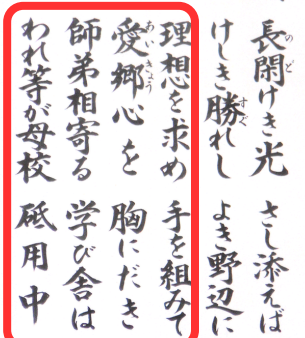 長閑けき光　さし添えば
けしき勝れし　よき野辺に
理想を求め　手を組みて
愛郷心を　胸にだき
師弟相寄る　学び舎は
われ等が母校　砥用中